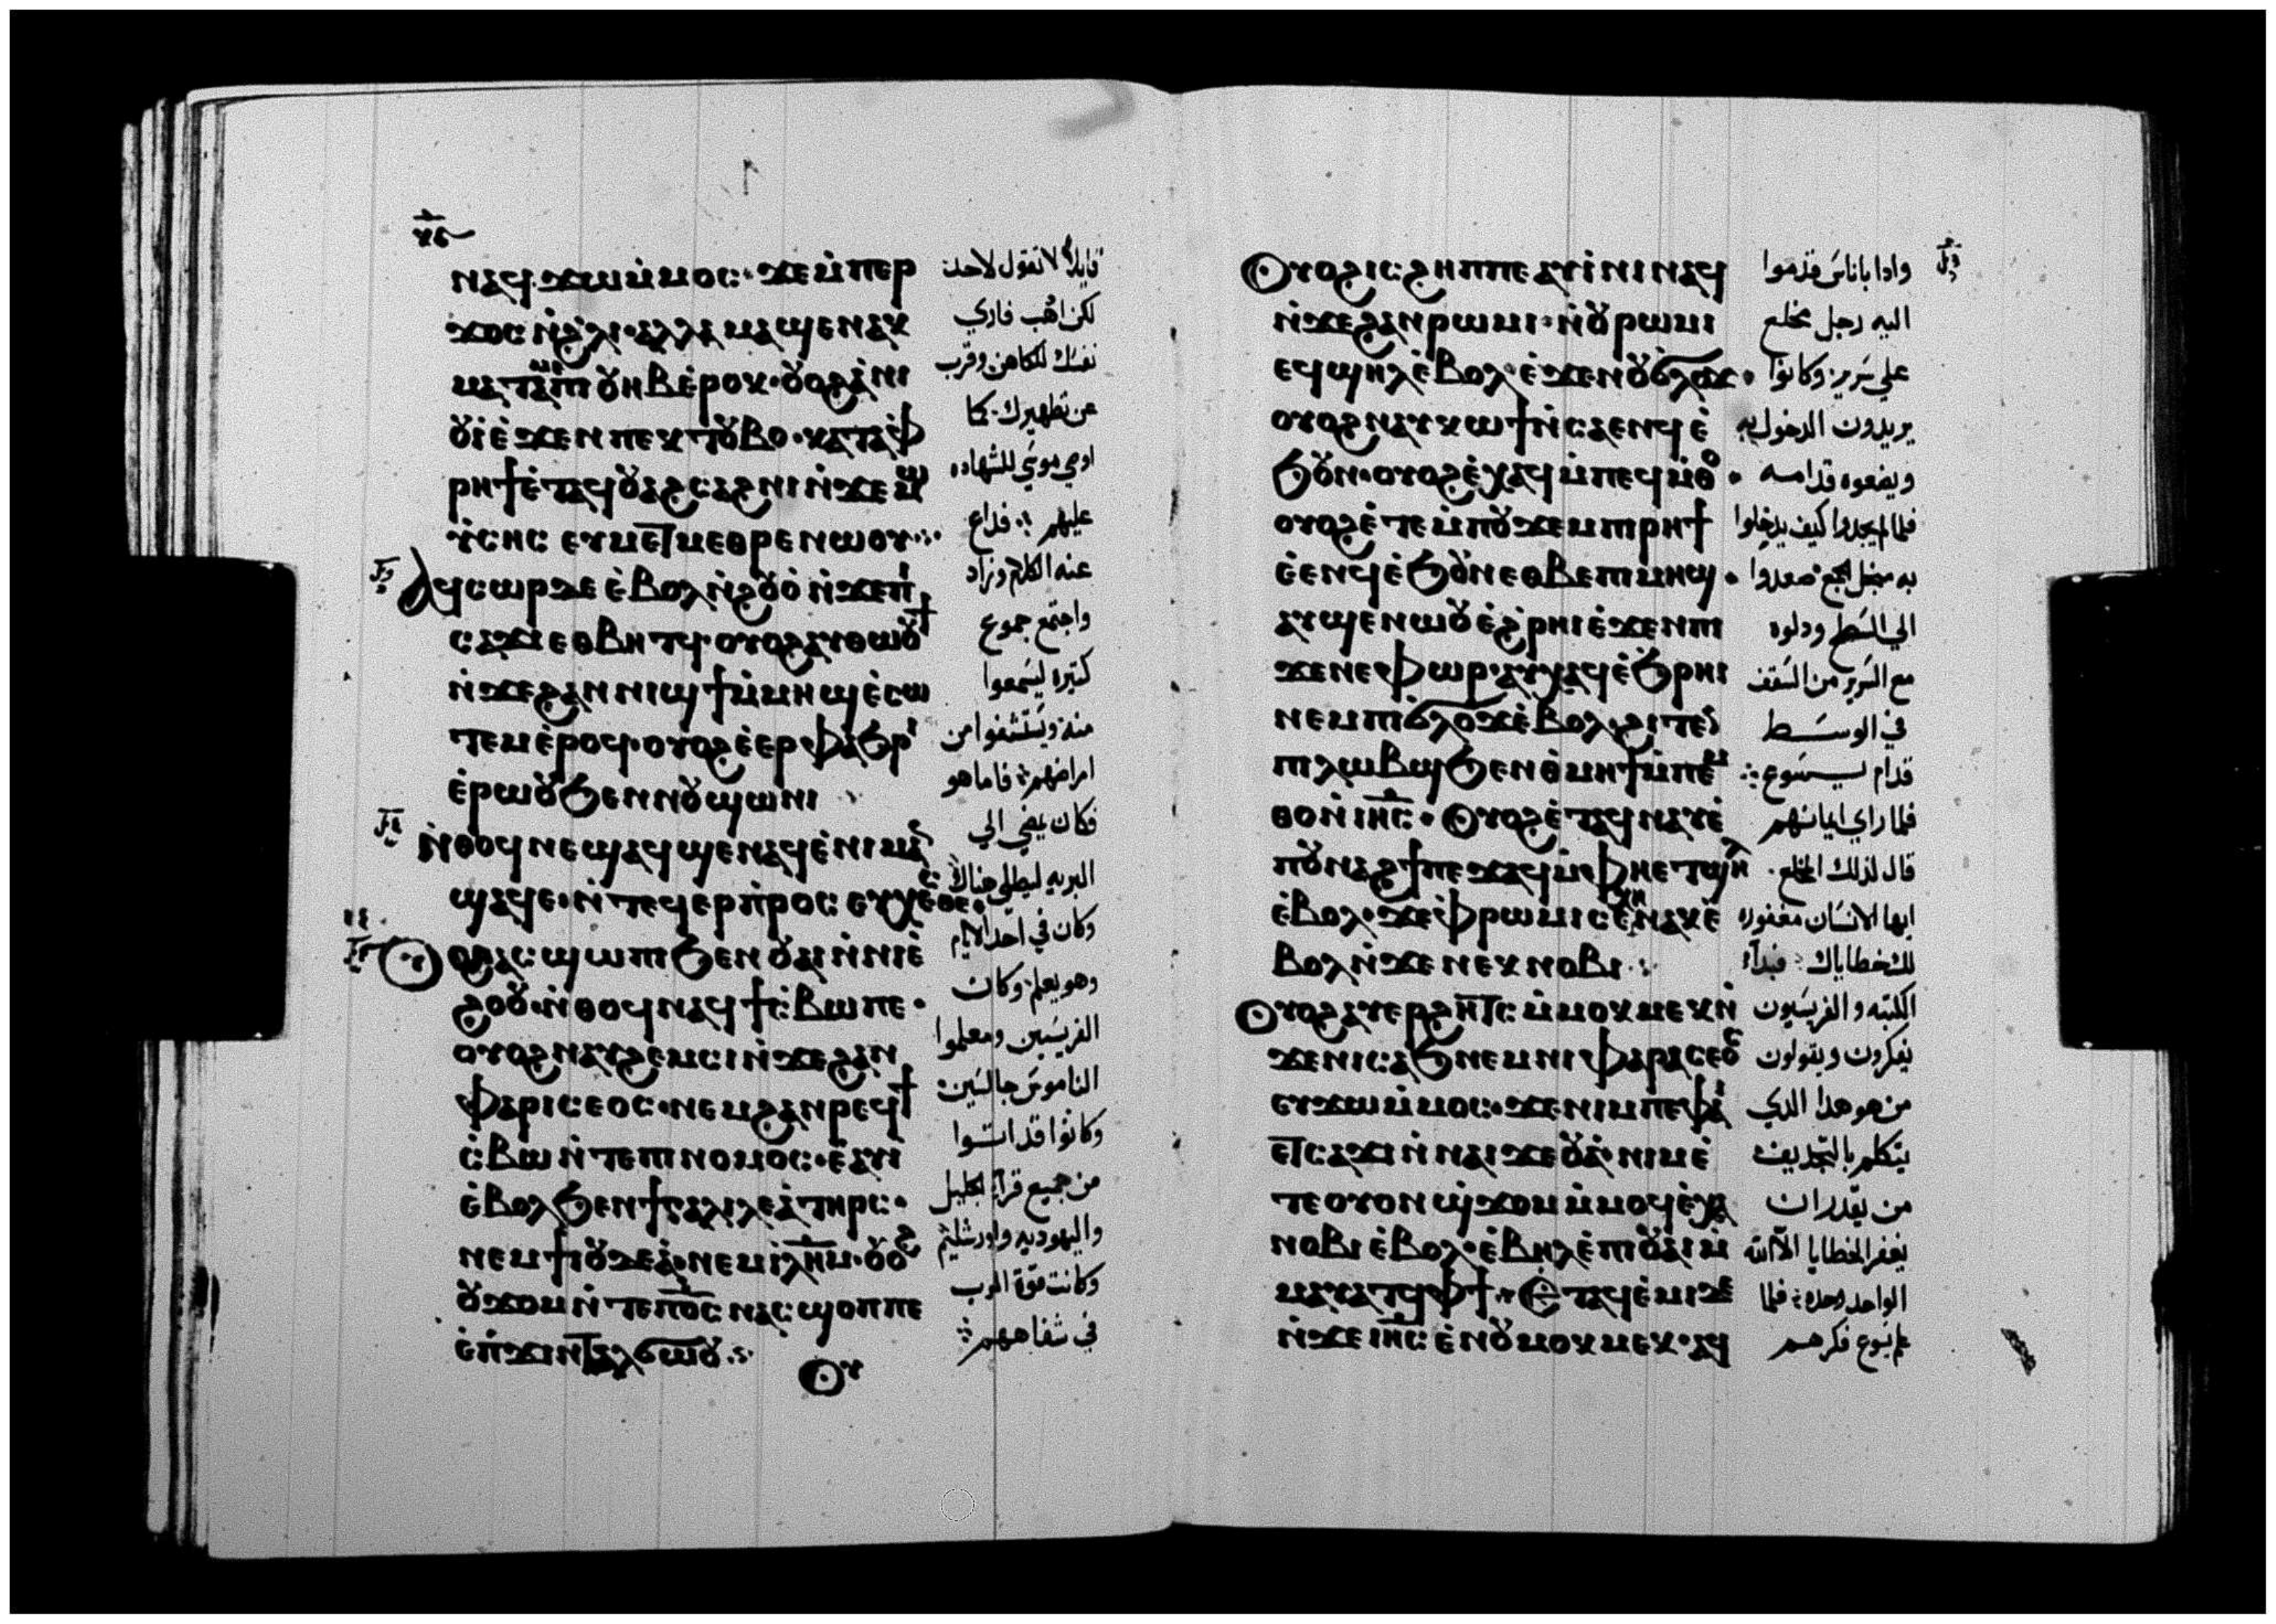 ⲛⲁϥϫⲱⲙ̇ⲙⲟⲥ· ϫⲉⲙ̇ⲡⲉⲣ
ϫⲟⲥ ⲛ̇ϩⲗⲓ· ⲁⲗⲗⲁ ⲙⲁϣⲉⲛⲁⲕ
ⲟⲩⲏⲃ ⲉ̇ⲣⲟⲕ· ⲟⲩⲟϩ ⲁ̇ⲛⲓ
ⲟⲩⲓ ⲉ̇ϫⲉⲛ ⲡⲉⲕⲧⲟⲩⲃⲟ· ⲕⲁⲧⲁⲫ
ⲣⲏϯ ⲉ̇ⲧⲁϥⲟⲩⲁϩⲥⲁϩⲛⲓ ⲛ̇ϫⲉⲙⲱ
ⲩ̇ⲥⲏⲥ ⲉⲩⲙⲉⲧⲙⲉⲑⲣⲉ ⲛⲱⲟⲩ
ⲁϥⲥⲱⲣ ⲇⲉ ⲉ̇ⲃⲟⲗ ⲛ̇ϩⲟⲩⲟ̇ ⲛ̇ϫⲉⲡⲓ
ⲥⲁϫⲓ ⲉⲑⲃⲏⲧϥ· ⲟⲩⲟϩ ⲁⲩⲑⲱⲟⲩϯ
ⲛ̇ϫⲉϩⲁⲛⲛⲓϣϯ ⲙ̇ⲙⲏϣ ⲉ̇ⲥⲱ
ⲧⲉⲙ ⲉ̇ⲣⲟϥ· ⲟⲩⲟϩ ⲉ̇ⲉⲣⲫⲁϧⲣⲓ
ⲉ̇ⲣⲱⲟⲩ ϧⲉⲛ ⲛⲟⲩϣⲱⲛⲓ
ⲛ̇ⲑⲟϥ ⲛⲉϣⲁϥϣⲉⲛⲁϥ ⲉ̇ⲛⲓⲙⲁⲛ̇
ϣⲁϥⲉ· ⲛ̇ⲧⲉϥⲉⲣⲡ̇ⲣⲟⲥⲉⲩⲭⲉⲥⲑⲉ·
ⲟⲩⲟϩ ⲁⲥϣⲱⲡⲓ ϧⲉⲛ ⲟⲩⲁⲓ ⲛ̇ⲛⲓⲉ̇
ϩⲟⲟⲩ· ⲛ̇ⲑⲟϥ ⲛⲁϥϯⲥ̇ⲃⲱⲡⲉ·
ⲟⲩⲟϩ ⲛⲁⲩϩⲉⲙⲥⲓ ⲛ̇ϫⲉϩⲁⲛ
ⲫⲁⲣⲓⲥⲉⲟⲥ· ⲛⲉⲙϩⲁⲛⲣⲉϥϯ
ⲥ̇ⲃⲱ ⲛ̇ⲧⲉⲡⲓⲛⲟⲙⲟⲥ· ⲉ̇ⲁⲩⲓ̇
ⲉ̇ⲃⲟⲗ ϧⲉⲛ ϯⲅⲁⲗⲓⲗⲉⲁ̇ ⲧⲏⲣⲥ·
ⲛⲉⲙ ϯⲓⲟⲩⲇⲉⲁ̇· ⲛⲉⲙ ⲓⲗⲏⲙ· ⲟⲩⲟϩ
ⲟⲩϫⲟⲙ ⲛ̇ⲧⲉⲡⲟ̅ⲥ̅ ⲛⲁⲥϣⲟⲡⲡⲉ
ⲉ̇ⲡ̇ϫⲓⲛⲧⲁⲗϭⲱⲟⲩ
ⲟⲩ
قايلا لا تقول لاحد
لكن اذهب فاري
نفسك للكاهن وقرب
عن تطهيرك كما
اوصي موسي للشهاده
عليهم فذاع
عنه الكلام وزاد
واجتمع جموع
كثيره ليسمعوا
منه ويستشفوا من
امراضهم فاما هو
فكان يمضي الي
البريه ليصلي هناك
وكان في احد الايام
وهو يعلم وكان
الفريسيين ومعلموا
الناموس جالسين
وكانوا قد اتوا
من جميع قرا الجليل
واليهوديه واورشليم
وكانت قوة الرب
في شفاههم
ⲟⲩⲟϩ ⲓⲥ ϩⲏⲡⲡⲉ ⲁⲩⲓ̇ⲛⲓ ⲛⲁϥ
ⲛ̇ϫⲉϩⲁⲛⲣⲱⲙⲓ· ⲛ̇ⲟⲩⲣⲱⲙⲓ
ⲉϥϣⲏⲗ ⲉ̇ⲃⲟⲗ· ⲉ̇ϫⲉⲛ ⲟⲩϭ̇ⲗⲟϫ·
ⲟⲩⲟϩ ⲛⲁⲩⲕⲱϯ ⲛ̇ⲥⲁⲉⲛϥ ⲉ̇
ϧⲟⲩⲛ· ⲟⲩⲟϩ ⲉ̇ⲭⲁϥ ⲙ̇ⲡⲉϥⲙ̇ⲑⲟ·
ⲟⲩⲟϩ ⲉ̇ⲧⲉⲙ̇ⲡⲟⲩϫⲉⲙ ⲡⲓⲣⲏϯ
ⲉ̇ⲉⲛϥ ⲉ̇ϧⲟⲩⲛ ⲉⲑⲃⲉ ⲡⲓⲙⲏϣ·
ⲁⲩϣⲉⲛⲱⲟⲩ ⲉ̇ϩ̇ⲣⲏⲓ ⲉ̇ϫⲉⲛ ⲡⲓ
ϫⲉⲛⲉⲫⲱⲣ· ⲁⲩⲭⲁϥ ⲉ̇ϧⲣⲏⲓ
ⲛⲉⲙ ⲡⲓϭ̇ⲗⲟϫ ⲉ̇ⲃⲟⲗ ϩⲓⲧⲉⲛ
ⲡⲓⲗⲱⲃϣ ϧⲉⲛ ⲑ̇ⲙⲏϯ ⲙ̇ⲡⲉⲙ
ⲑⲟ ⲛ̇ⲓⲏ̅ⲥ̅· ⲟⲩⲟϩ ⲉ̇ⲧⲁϥⲛⲁⲩ ⲉ̇
ⲡⲟⲩⲛⲁϩϯ ⲡⲉϫⲁϥ ⲙ̇ⲫⲏⲉⲧϣⲏⲗ
ⲉ̇ⲃⲟⲗ· ϫⲉ ⲫ̇ⲣⲱⲙⲓ ⲥⲉⲭⲏ ⲛⲁⲕ ⲉ̇
ⲃⲟⲗ ⲛ̇ϫⲉⲛⲉⲕⲛⲟⲃⲓ
ⲟⲩⲟϩ ⲁⲩⲉⲣϩⲏⲧⲥ ⲙ̇ⲙⲟⲕⲙⲉⲕ ⲛ̇
ϫⲉⲛⲓⲥⲁϧ ⲛⲉⲙ ⲛⲓⲫⲁⲣⲓⲥⲉⲟⲥ
ⲉⲩϫⲱ ⲙ̇ⲙⲟⲥ· ϫⲉ ⲛⲓⲙ ⲡⲉ ⲫⲁⲓ
ⲉⲧⲥⲁϫⲓ ⲛ̇ⲛⲁⲓϫⲉⲟⲩⲁ̇· ⲛⲓⲙ ⲉ̇
ⲧⲉⲟⲩⲟⲛ ϣ̇ϫⲟⲙ ⲙ̇ⲙⲟϥ ⲉ̇ⲭⲁ
ⲛⲟⲃⲓ ⲉ̇ⲃⲟⲗ· ⲉ̇ⲃⲏⲗ ⲉ̇ⲡⲓⲟⲩⲁⲓ ⲙ̇
ⲙⲁⲩⲁⲧϥ ⲫϯ· ⲉ̇ⲧⲁϥⲉ̇ⲙⲓ ⲇⲉ
ⲛ̇ϫⲉⲓⲏ̅ⲥ̅ ⲉ̇ⲛⲟⲩⲙⲟⲕⲙⲉⲕ· ⲁϥ
واذا باناس قدموا
اليه رجل مخلع
علي سرير وكانوا
يريدون الدخول به
ويضعوه قدامه
فلما لم يجدوا كيف يدخلوا
به من اجل الجمع صعدوا
الي السطح ودلوه
مع السرير من السقف
في الوسط
قدام يسوع
فلما راي ايمانهم
قال لذلك المخلع
ايها الانسان مغفوره
لك خطاياك فبدأ
الكتبه والفريسيون
يفكرون ويقولون
من هو هذا الذي
يتكلم بالتجديف
من يقدر ان
يغفر الخطايا الا الله
الواحد وحده فلما
علم يسوع فكرهم